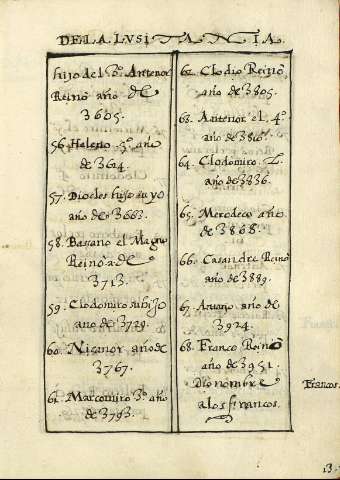 DE LA LVSITANIA
hijo del 2º. Antenor
Reino año de
3605.
56. Heleno 3º. año
de 3614.
57. Diocles hijo suyo
año de 3663.
58. Basano el Magno
Reino a. de
3713.
59. Clodomiro su hijo
año de 3739.
60. Nicanor año de
3767.
61. Marcomiro 3º. año
de 3793.
62. Clodio Reino
año de 3805.
63. Antenor el 4º.
año de 3816.
64. Clodomiro 2.
año de 3836.
65. Merodeco año
de 3868.
66. Casandre Reino
año de 3889.
67. Antario año de
3924.
68. Franco Reino
año de 3951.
Dio nombre
a los francos.
Francos.
13.